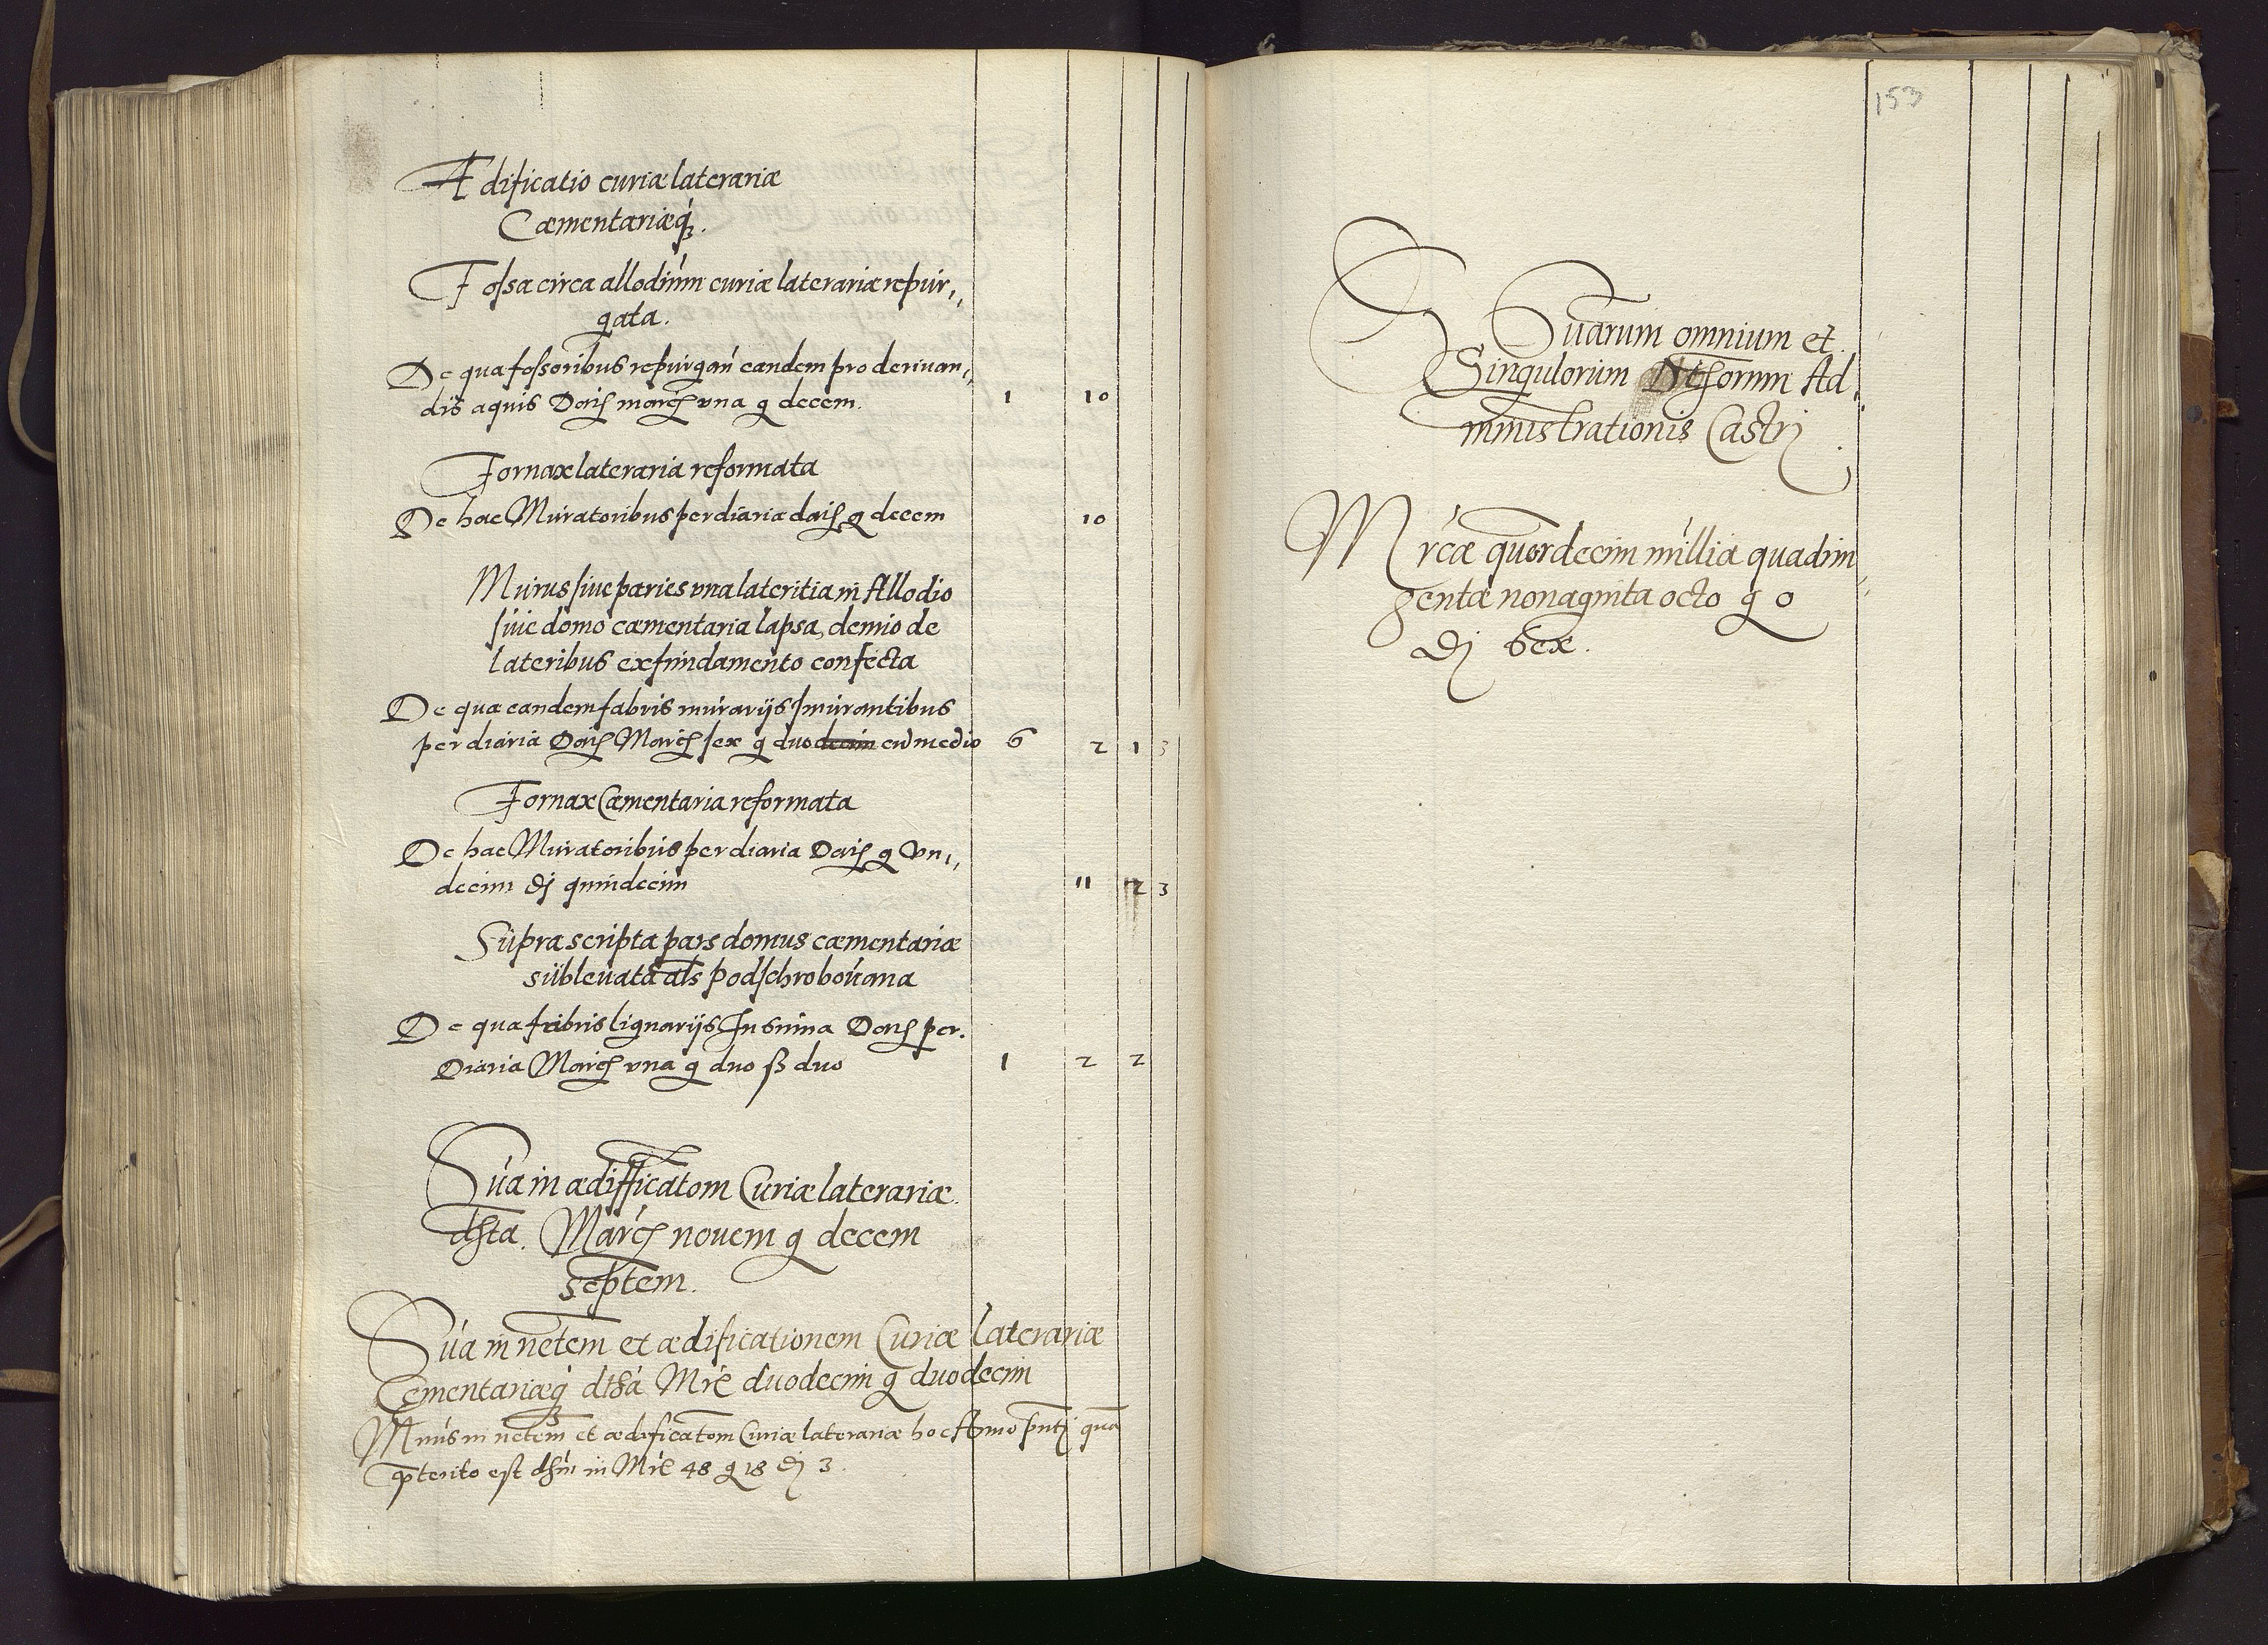 Ædificatio curiæ laterariæ
Cæmentariæq3.
Fossa circa allodium curiæ laterariæ repur,,
gata.
De qua fossoribus repurgan eandem pro deriuan,,
dis aquis Daris marcs vna g decem. 1 10
Fornax lateraria reformata
De hac Muratoribus per diaria daris g decem 10
Murus siue paries vna lateritia in Allodio
siue domo cæmentaria lapsa, demio de
lateribus ex fundamento confecta
De qua eandem fabris murarijs smurantibus
per diaria Daris Marcs sex g duodecim cu medio 6 2 1 3
Fornax Cæmentaria reformata
De hac Muratoribus per diaria Daris g Vn,,
decim đ quindecim 11 2 3
Suprascripta pars domus cæmentariæ
subleuata als podschrobouana
De qua fabris lignarijs In suma Daris per.
Diaria Marcs vna g duo ß duo 1 2 2
Sua in ædifficatom Curiæ laterariæ
dista. Marcs nouem g decem
septem.
Sua in netem et ædificationem Curiæ laterariæ
Cementariæq3 distã Mrc duodecim g duodecim
Minus in netem et ædificatom Curiæ laterariæ hoc Anno pnti qua
pterito est distm in Mrc 48 g 18 đ 3.
153
Suarum omnium et
Singulorum Distorum Ad,
ministrationis Castri
Mrcæ quordecim millia quadrin,
gentæ nonaginta octo g o
đ sex.